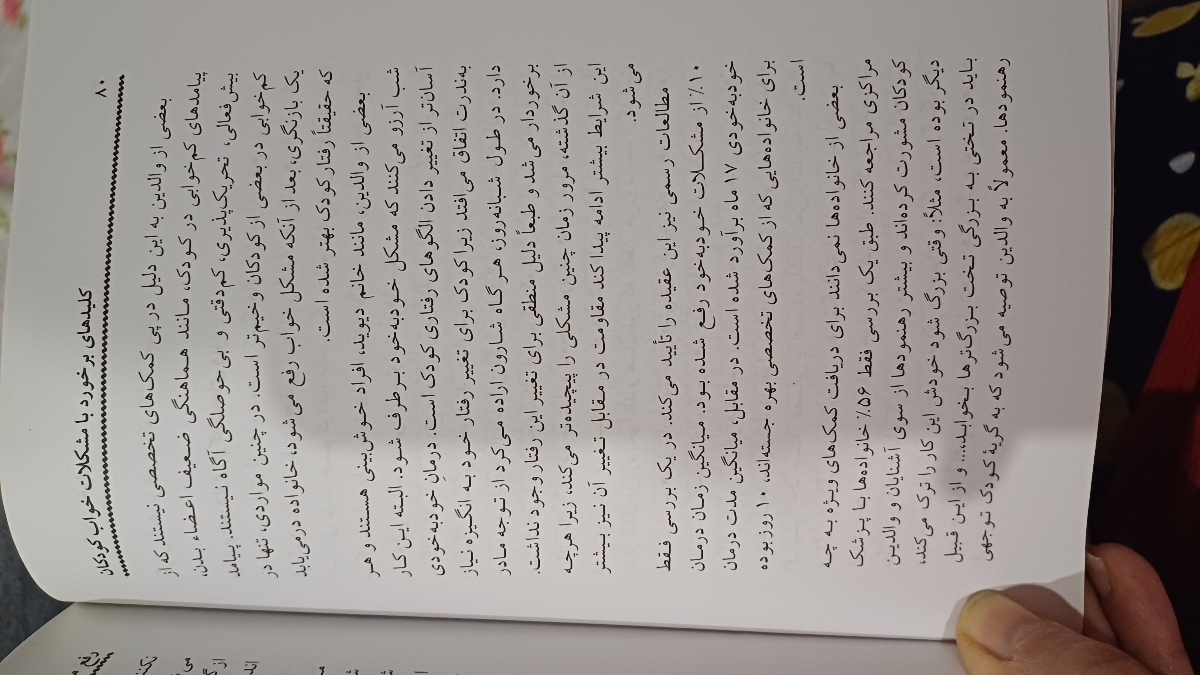 ۸۰
کلیدهای برخورد با مشکلات خواب کودکان
بعضی از والدین به این دلیل در پی کمک‌های تخصصی نیستند که از
پیامدهای کم‌خوابی در کودک، مانند هماهنگی ضعیف اعضاء بدن،
بیش‌فعالی، تحریک‌پذیری، کم‌دقتی و بی‌حوصلگی آگاه نیستند. پیامد
کم‌خوابی در بعضی از کودکان وخیم‌تر است. در چنین مواردی، تنها در
یک بازنگری، بعد از آنکه مشکل خواب رفع می‌شود، خانواده درمی‌یابد
که حقیقتاً رفتار کودک بهتر شده است.
بعضی از والدین، مانند خانم دیوید، افراد خوش‌بینی هستند و هر
شب آرزو می‌کنند که مشکل خودبه‌خود برطرف شود. البته این کار
آسان‌تر از تغییر دادن الگوهای رفتاری کودک است. درمانِ خودبه‌خودی
به‌ندرت اتفاق می‌افتد زیرا کودک برای تغییر رفتار خود به انگیزه نیاز
دارد. در طول شبانه‌روز، هرگاه شارون اراده می‌کرد از توجه مادر
برخوردار می‌شد و طبعاً دلیل منطقی برای تغییر این رفتار وجود نداشت.
از آن گذشته، مرور زمان چنین مشکلی را پیچیده‌تر می‌کند، زیرا هرچه
این شرایط بیشتر ادامه پیدا کند مقاومت در مقابل تغییر آن نیز بیشتر
می‌شود.
مطالعات رسمی نیز این عقیده را تأیید می‌کند. در یک بررسی فقط
۱۰٪ از مشکلات خودبه‌خود رفع شده بود. میانگین زمان درمان
خودبه‌خودی ۱۷ ماه برآورد شده است. در مقابل، میانگین مدت درمان
برای خانواده‌هایی که از کمک‌های تخصصی بهره جسته‌اند، ۱۰ روز بوده
است.
بعضی از خانواده‌ها نمی‌دانند برای دریافت کمک‌های ویژه به چه
مراکزی مراجعه کنند. طبق یک بررسی فقط ۵۶٪ خانواده‌ها با پزشک
کودکان مشورت کرده‌اند و بیشتر رهنمودها از سوی آشنایان و والدین
دیگر بوده است، مثلاً: وقتی بزرگ شود خودش این کار را ترک می‌کند،
باید در تختی به بزرگی تخت بزرگ‌ترها بخوابد.... و از این قبیل
رهنمودها. معمولاً به والدین توصیه می‌شود که به گریهٔ کودک توجهی